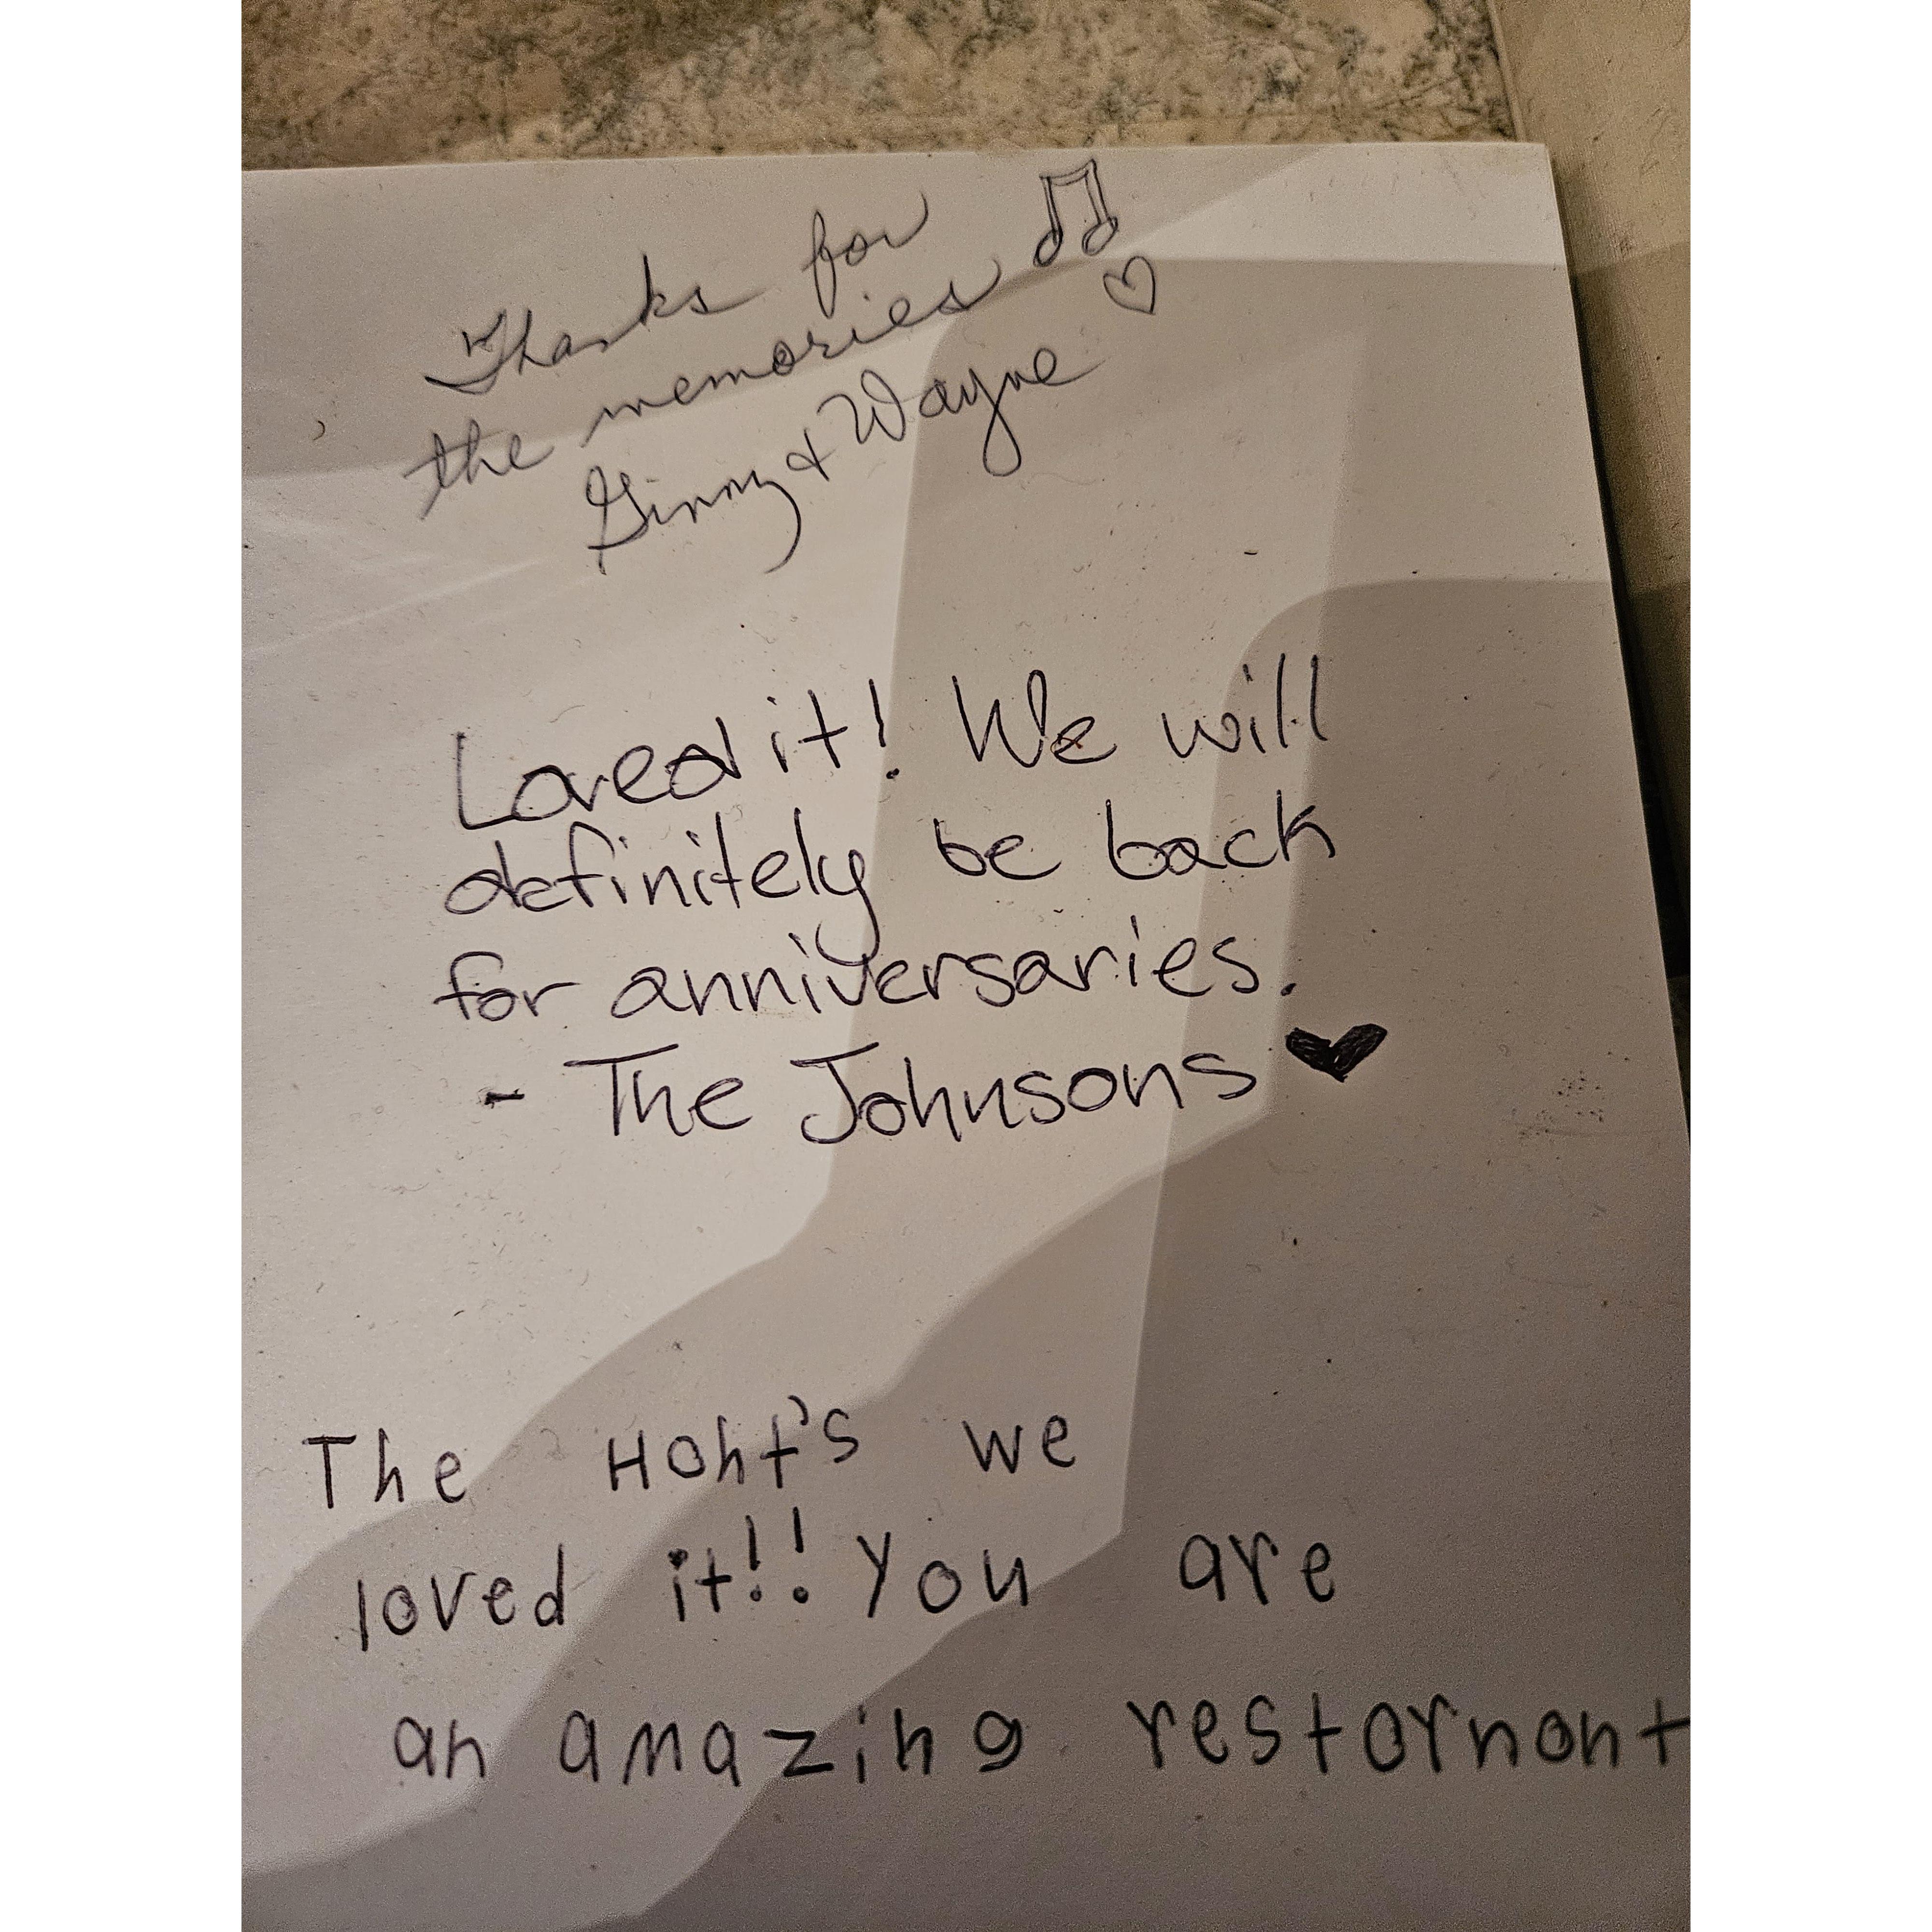 Thanks for
the memories
Ginny & Wayne
Loved it! We will
definitely be back
for anniversaries.
- The Johnsons
The Hoht's we
loved it!! You are
an amazing restornont